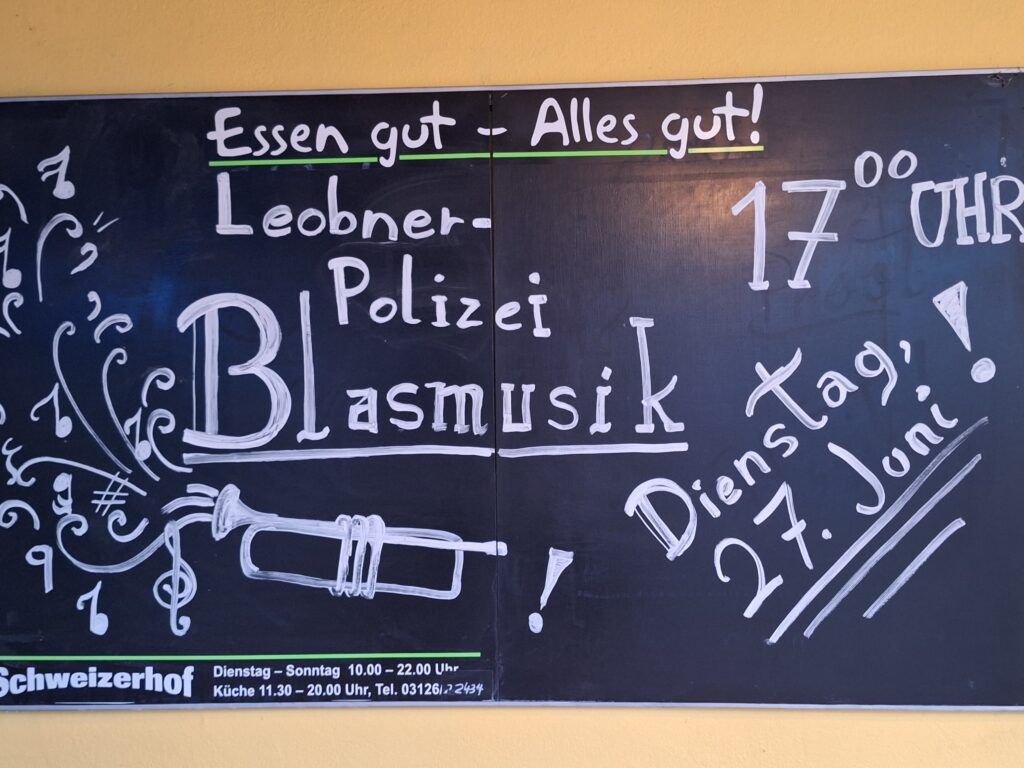 Essen gut - Alles gut!
Leobner-
Polizei
Blasmusik
!
17⁰⁰ UHR
Dienstag,
27. Juni!
Schweizerhof
Dienstag – Sonntag 10.00 – 22.00 Uhr
Küche 11.30 – 20.00 Uhr, Tel. 03126/22434